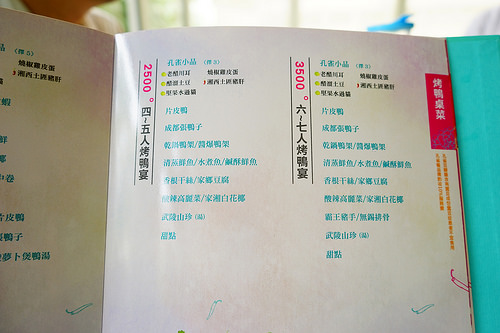 2500。四~五人烤鴨宴
孔雀小品 (擇五)
老醋川耳 燒椒雞皮蛋
醋溜土豆 湘西土匪豬肝
堅果水過貓
片皮鴨
成都張鴨子
乾鍋鴨架/醬爆鴨架
清蒸鮮魚/水煮魚/鹹酥鮮魚
香根干絲/家鄉豆腐
酸辣高麗菜/家湘白花椰
武陵山珍 (湯)
甜點
3500。六~七人烤鴨宴
孔雀小品 (擇五)
老醋川耳 燒椒雞皮蛋
醋溜土豆 湘西土匪豬肝
堅果水過貓
片皮鴨
成都張鴨子
乾鍋鴨架/醬爆鴨架
清蒸鮮魚/水煮魚/鹹酥鮮魚
香根干絲/家鄉豆腐
酸辣高麗菜/家湘白花椰
霸王豬手/無錫排骨
武陵山珍 (湯)
甜點
烤鴨桌菜